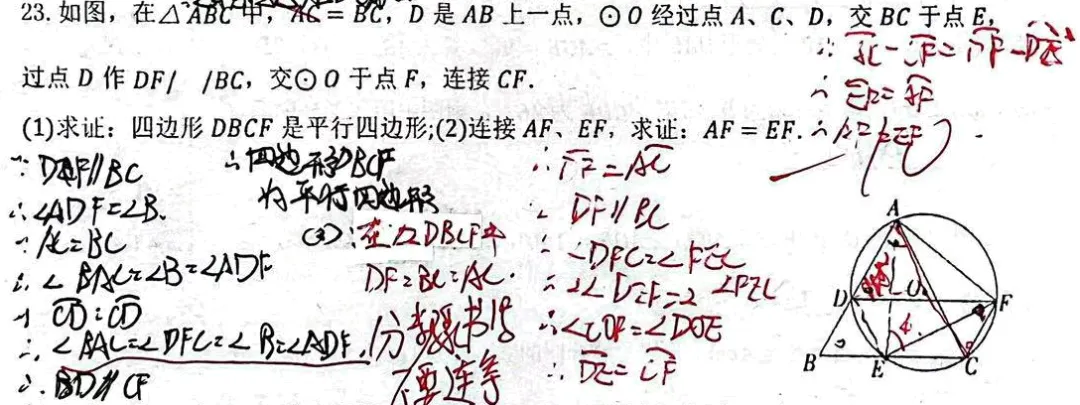 23. 如图，在△ABC中，AC = BC，D 是 AB 上一点，⊙O 经过点 A、C、D，交 BC 于点 E，
过点 D 作 DF/ /BC，交⊙O 于点 F，连接 CF.
(1)求证：四边形 DBCF 是平行四边形;(2)连接 AF、EF，求证：AF = EF.
∵ DF∥BC
∴∠ADF=∠B.
∵AC=BC
∴∠BAC=∠B=∠ADF
∵ CD=CD
∴∠BAC=∠DFC=∠B=∠ADF.
∴BD∥CF
∴四边形DBCF
为平行四边形
(2):在▱DBCF中
DF=BC=AC.
不要连等
∴DF=AC
∵DF∥BC
∴DE=CF
∴AC-CF=DF-DE
∴EF=AF
∴AF=EF
A
D
O
F
B
E
C